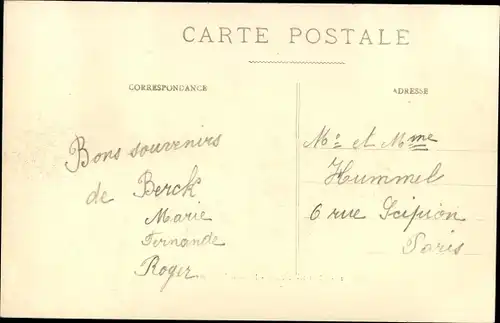 CARTE POSTALE
CORRESPONDANCE
ADRESSE
Bons souvenirs
de Berck
Marie
Fernande
Roger
Mr et Mme
Hummel
6 rue Scipion
Paris